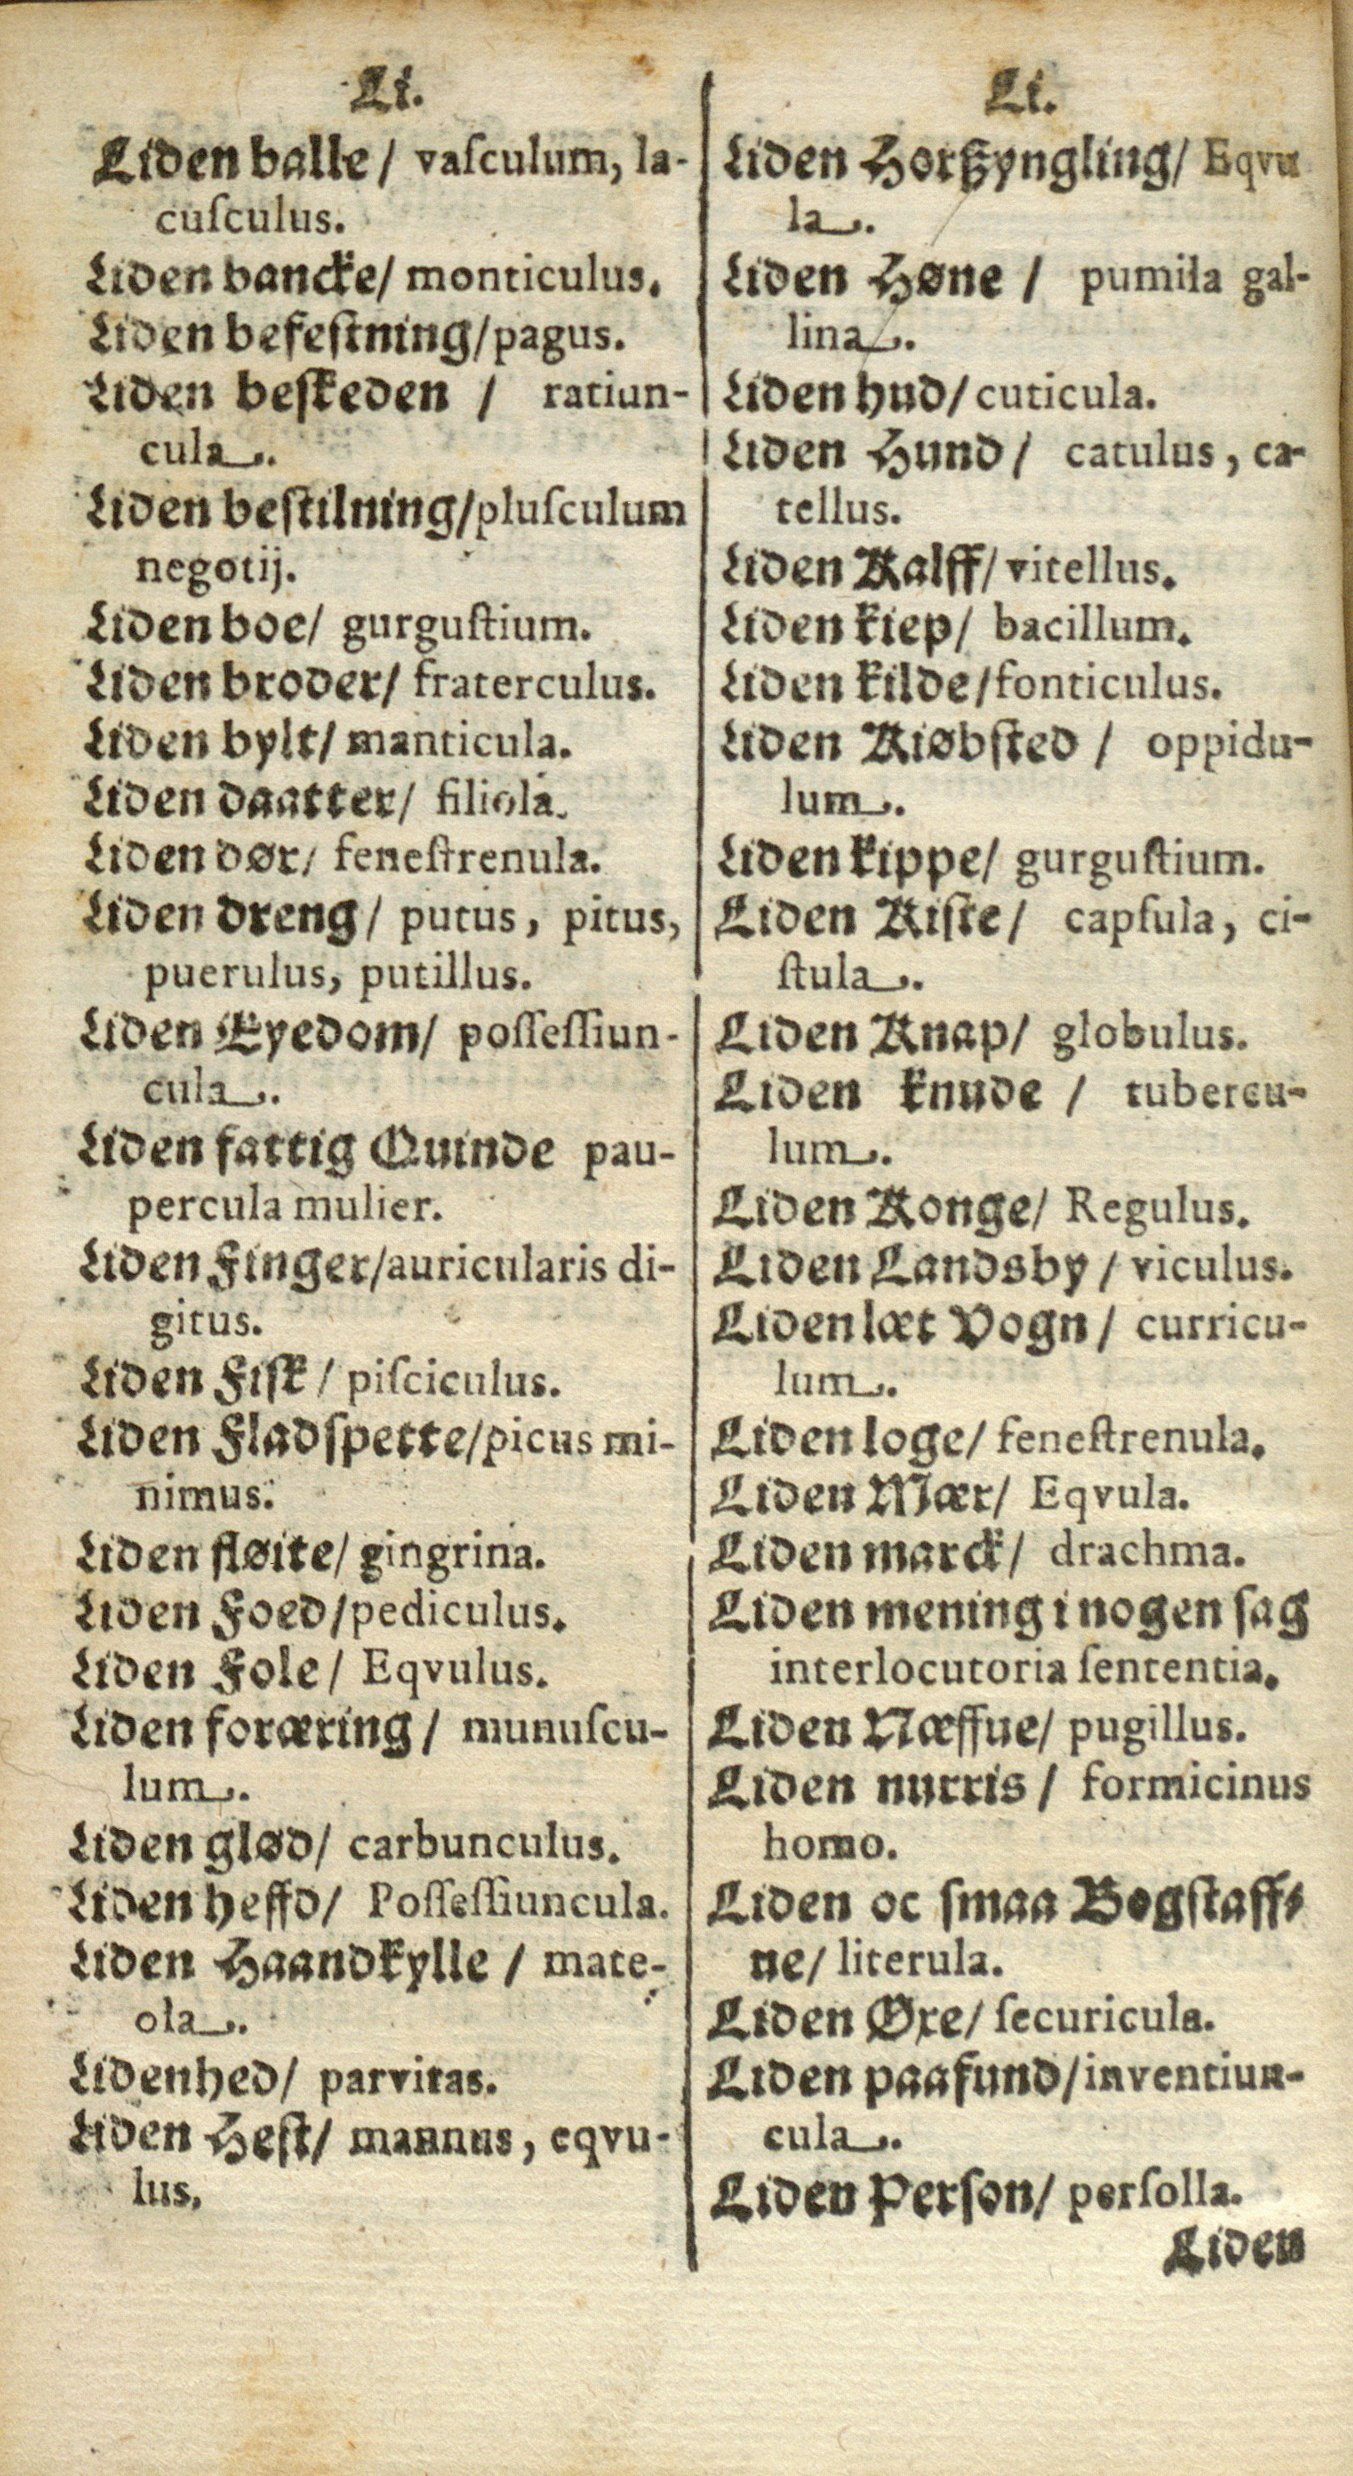 Li.
Liden balle/ vaſculum, la-
cuſculus.
Liden bancke/ monticulus.
Liden befeſtning/pagus.
Liden beſkeden / ratiun-
cula.
Liden beſtilning/pluſculum
negotij.
Liden boe/ gurguſtium.
Liden broder/ fraterculus.
Liden bylt/ manticula.
Liden daatter/ filiola.
Liden dør/ feneſtrenula.
Liden dreng/ putus, pitus,
puerulus, putillus.
Liden Eyedom/ poſſeſſiun-
cula.
Liden fattig Quinde pau-
percula mulier.
Liden Finger/auricularis di-
gitus.
Liden Fiſk/ piſciculus.
Liden Fladſpette/picus mi-
nimus.
Liden fløite/ gingrina.
Liden Foed/pediculus.
Liden Fole/ Eqvulus.
Liden foræring/ munuſcu-
lum.
Liden glød/ carbunculus.
Liden heffd/ Poſſeſſiuncula.
Liden Haandkylle / mate-
ola.
Lidenhed/ parvitas.
Liden Heſt/ mannus, eqvu-
lus.
Li.
Liden Horßyngling/ Eqvu
la.
Liden Høne / pumila gal-
lina.
Liden hud/ cuticula.
Liden Hund/ catulus, ca-
tellus.
Liden Kalff/ vitellus.
Liden kiep/ bacillum.
Liden kilde/fonticulus.
Liden Kiøbſted / oppidu-
lum.
Liden kippe/ gurguſtium.
Liden Kiſte/ capſula, ci-
ſtula.
Liden Knap/ globulus.
Liden knude / tubercu-
lum.
Liden Konge/ Regulus.
Liden Landsby/ viculus.
Liden læt Vogn/ curricu-
lum.
Liden loge/ feneſtrenula.
Liden Mær/ Eqvula.
Liden marck/ drachma.
Liden mening i nogen ſag
interlocutoria ſententia.
Liden Næffue/ pugillus.
Liden nurris/ formicinus
homo.
Liden oc ſmaa Bogſtaff-
ne/ literula.
Liden Øxe/ ſecuricula.
Liden paafund/inventiun-
cula.
Liden Perſon/ perſolla.
Liden